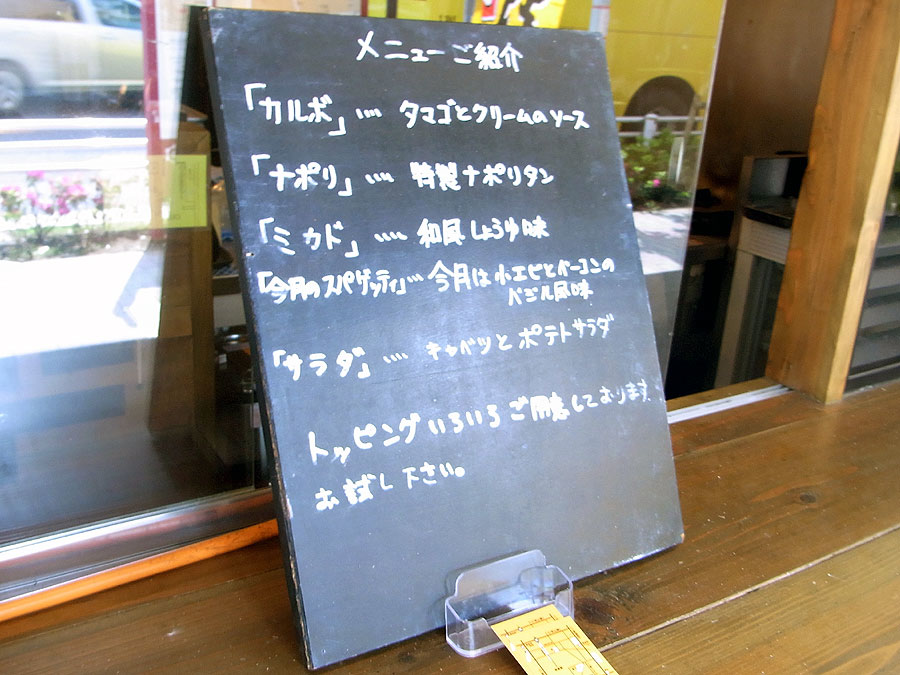 メニューご紹介
「カルボ」‥‥ タマゴとクリームのソース
「ナポリ」‥‥ 特製ナポリタン
「ミカド」‥‥ 和風しょうゆ味
「今月のスパゲッティ」‥‥ 今月は小エビとベーコンの
バジル風味
「サラダ」‥‥ キャベツとポテトサラダ
トッピングいろいろご用意しております。
お試し下さい。